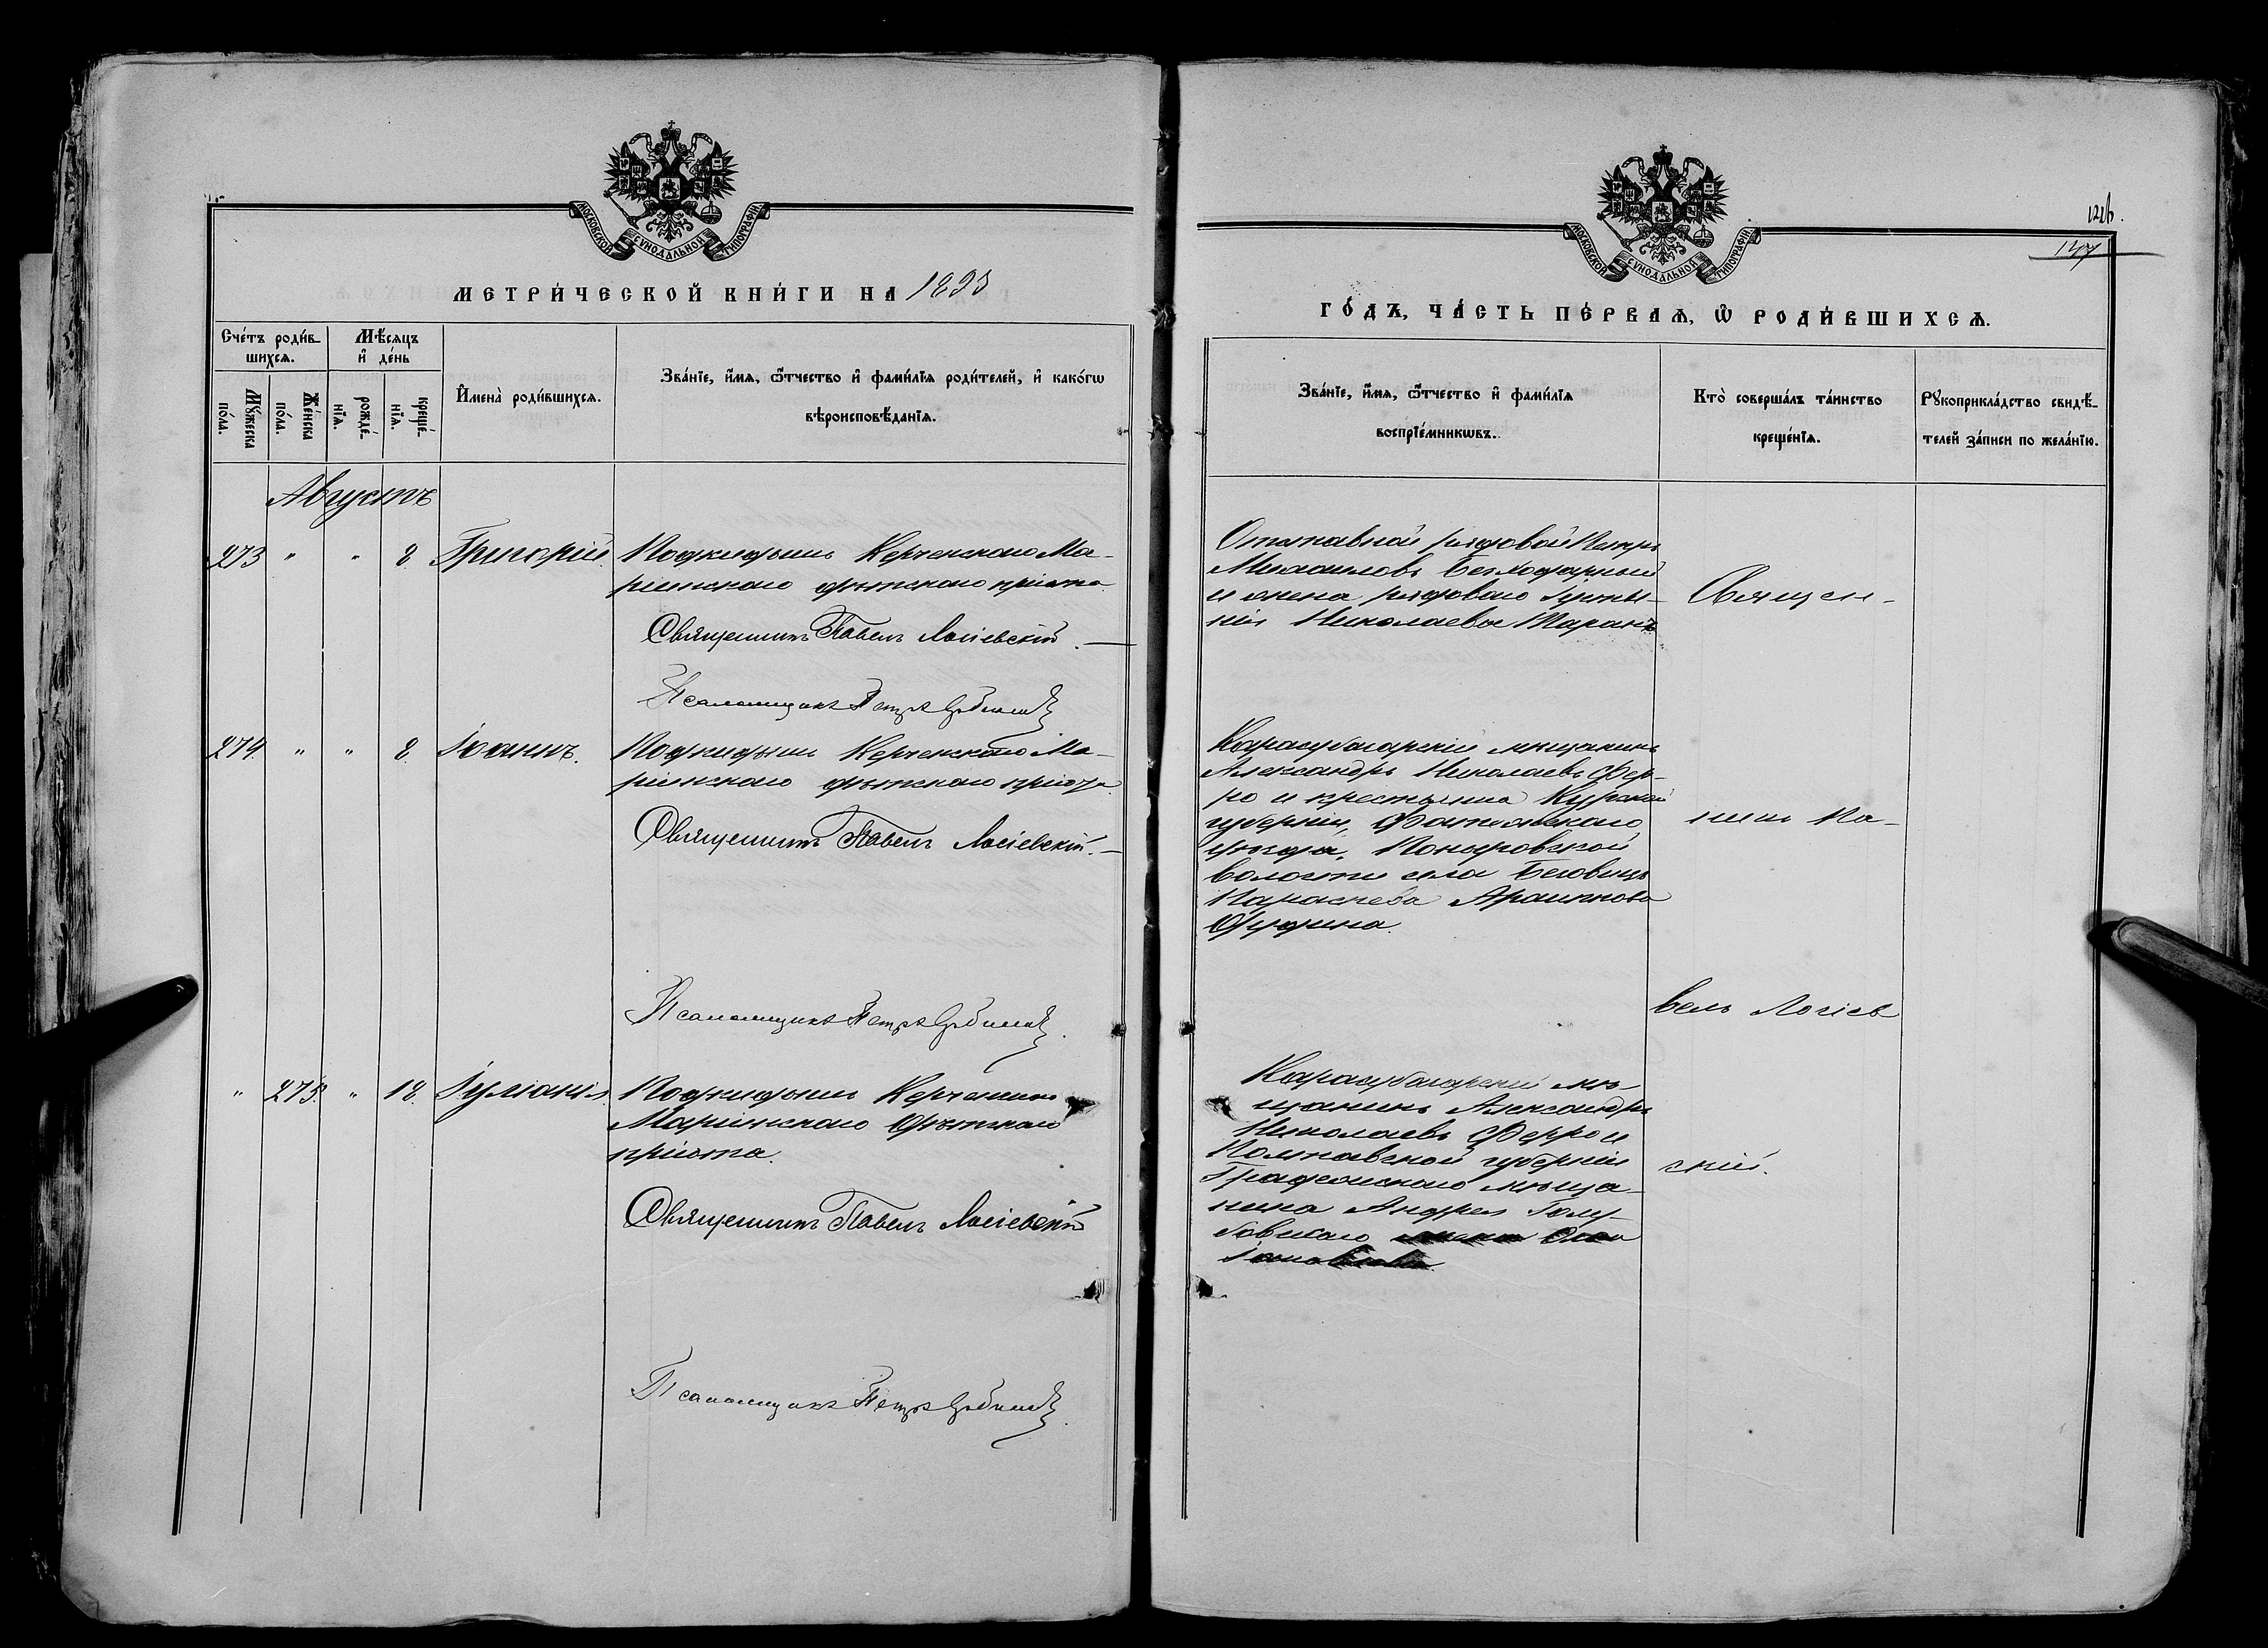 МОСКОВСКОЙ СѴНОДАЛЬНОЙ ТИПОГРАФІИ
МЕТРИ́ЧЕСКОЙ КНИ́ГИ НА 1893
Сче́тъ роди́в-
шихсѧ.
Мѣ́сѧцъ
и҆ де́нь
Мꙋ́жеска
по́ла.
Же́нска
по́ла.
рожде́-
нїѧ.
креще́-
нїѧ.
И҆мена̀ роди́вшихсѧ.
Зва́нїе, и҆́мѧ, ѻ҆́тчество и҆ фами́лїѧ роди́телей, и҆ како́гѡ
вѣроисповѣ́данїѧ.
Августъ
273 " " 8 Григорій.
Подкидышъ Керченскаго Ма-
ріинскаго дѣтскаго пріюта.
Священникъ Павелъ Логіевскій.
Псаломщикъ Петръ
274 " " 8. Іоаннъ.
Подкидышъ Керченскаго Ма-
ріинскаго дѣтскаго пріюта.
Священникъ Павелъ Логіевскій.
Псаломщикъ Петръ
" 275. " 18. Іуліанія.
Подкидышъ Керченскаго
Маріинскаго Дѣтскаго
пріюта.
Священникъ Павелъ Логіевскій
Псаломщикъ Петръ
МОСКОВСКОЙ СѴНОДАЛЬНОЙ ТИПОГРАФІИ
126.
127
ГО́ДЪ, ЧА́СТЬ ПЕ́РВАѦ, Ѡ҆ РОДИ́ВШИХСѦ.
Зва́нїе, и҆́мѧ, ѻ҆́тчество и҆ фами́лїѧ
воспрїе́мникѡвъ.
Кто̀ соверша́лъ та́инство
креще́нїѧ.
Рꙋкоприкла́дство свидѣ́-
телей за́писи по жела́нїю.
Отставной рядовой Петръ
Михаиловъ
и жена рядоваго
нія Николаева Таранъ
Священ-
Карасубазарскій мѣщанинъ
Александръ Николаевъ Фер-
ро и крестьянка Курской
губерніи, Фатежскаго
уѣзда, Поныровской
волости села
Параскева
никъ Па-
велъ Логіев
Карасубазарскій мѣ-
щанинъ Александръ
Николаевъ Ферро и
Полтавской губерніи
Градижскаго мѣща-
нина Андрея Голу-
бовскаго
скій.